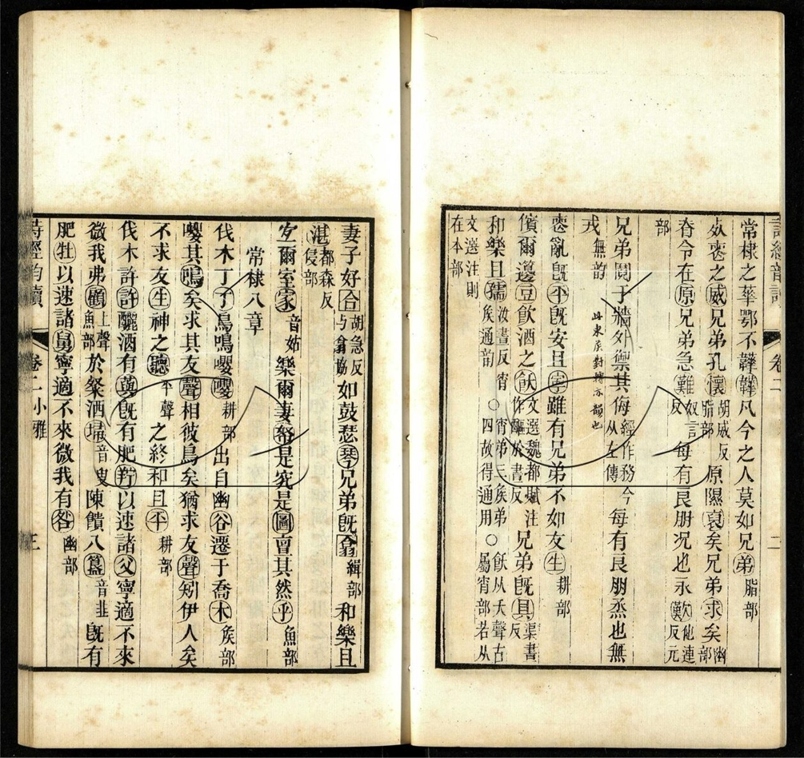 常棣之華鄂不韡韡凡今之人莫如兄弟脂部
死喪之威兄弟孔懷胡威反脂部原隰裒矣兄弟求矣幽部
脊令在原兄弟急難奴言反每有良朋況也永歎他連反元
部
兄弟鬩于牆外禦其侮經作務今从左傳每有良朋烝也無
戎無韵
喪亂既平既安且寧雖有兄弟不如友生耕部
儐爾籩豆飲酒之飫文選魏都賦注作醧於書反兄弟既具渠書反
和樂且孺汝晝反宵矣通韵
文選注則
在本部
詩經韵讀
卷二
二
妻子好合胡急反与翕協如鼓瑟琴兄弟既翕緝部和樂且
湛都森反侵部
宜爾室家音姑樂爾妻帑是究是圖亶其然乎魚部
常棣八章
伐木丁丁鳥鳴嚶嚶耕部出自幽谷遷于喬木矦部
嚶其鳴矣求其友聲相彼鳥矣猶求友聲矧伊人矣
不求友生神之聽平聲之終和且平耕部
伐木許許釃酒有藇既有肥羜以速諸父寧適不來
微我弗顧上聲魚部於粲洒埽音叟陳饋八簋音韭既有
肥牡以速諸舅寧適不來微我有咎幽部
詩經韵讀
卷二小雅
三